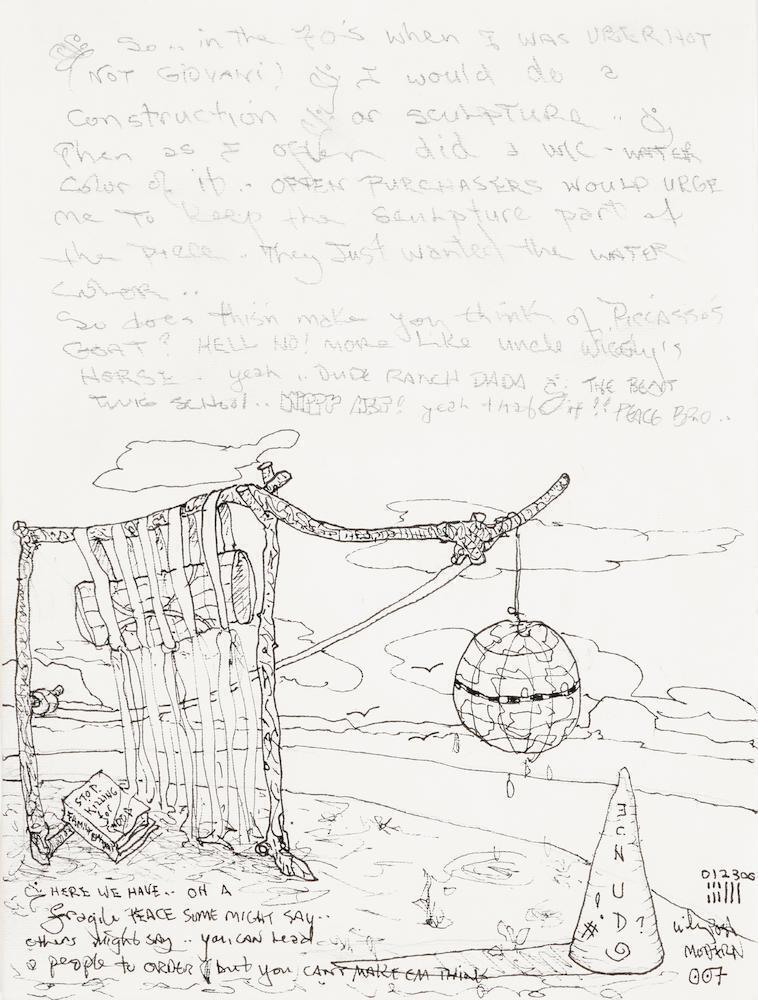 So.. in the 70's when I WAS UBER HOT
(NOT GIOVANI) I would do a
construction or sculpture ..
Then as I often did a W/C - WATER
Color of it.. OFTEN PURCHASERS WOULD URGE
me TO keep the sculpture part of
the piece.. They Just wanted the WATER
COLOR ..
So does this'n make you think of PICCASSO'S
GOAT? HELL NO! MORE Like uncle WIGGLY'S
HORSE. yeah .. DUDE RANCH DADA THE BENT
TWIG SCHOOL.. yeah that's it!! PEACE BRO..
STOP
KILLING
for
HERE WE HAVE.. OH A
fragile PEACE SOME MIGHT SAY..
others might say .. you CAN lead
a people to ORDER but you CAN'T MAKE EM THINK
D U N C E
! # ?
012306
MODERN
007